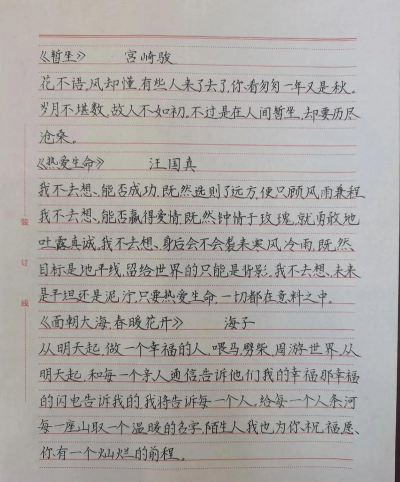 《暂坐》 宫崎骏
花不语,风却懂,有些人来了去了,你看匆匆一年又是秋。
岁月不堪数,故人不如初,不过是在人间暂坐,却要历尽
沧桑。
《热爱生命》 汪国真
我不去想、能否成功,既然选则了远方,便只顾风雨兼程
我不去想、能否赢得爱情,既然钟情于玫瑰,就勇敢地
吐露真诚。我不去想、身后会不会袭来寒风冷雨,既然、
目标是地平线,留给世界的只能是背影。我不去想、未来
是平坦还是泥泞,只要热爱生命,一切都在意料之中。
《面朝大海,春暖花开》 海子
从明天起,做一个幸福的人,喂马,劈柴,周游世界,从
明天起,和每一个亲人通信,告诉他们我的幸福那幸福
的闪电告诉我的,我将告诉每一个人。给每一个人条河
每一座山取一个温暖的名字,陌生人我也为你祝福愿、
你有一个灿烂的前程。
装
订
线